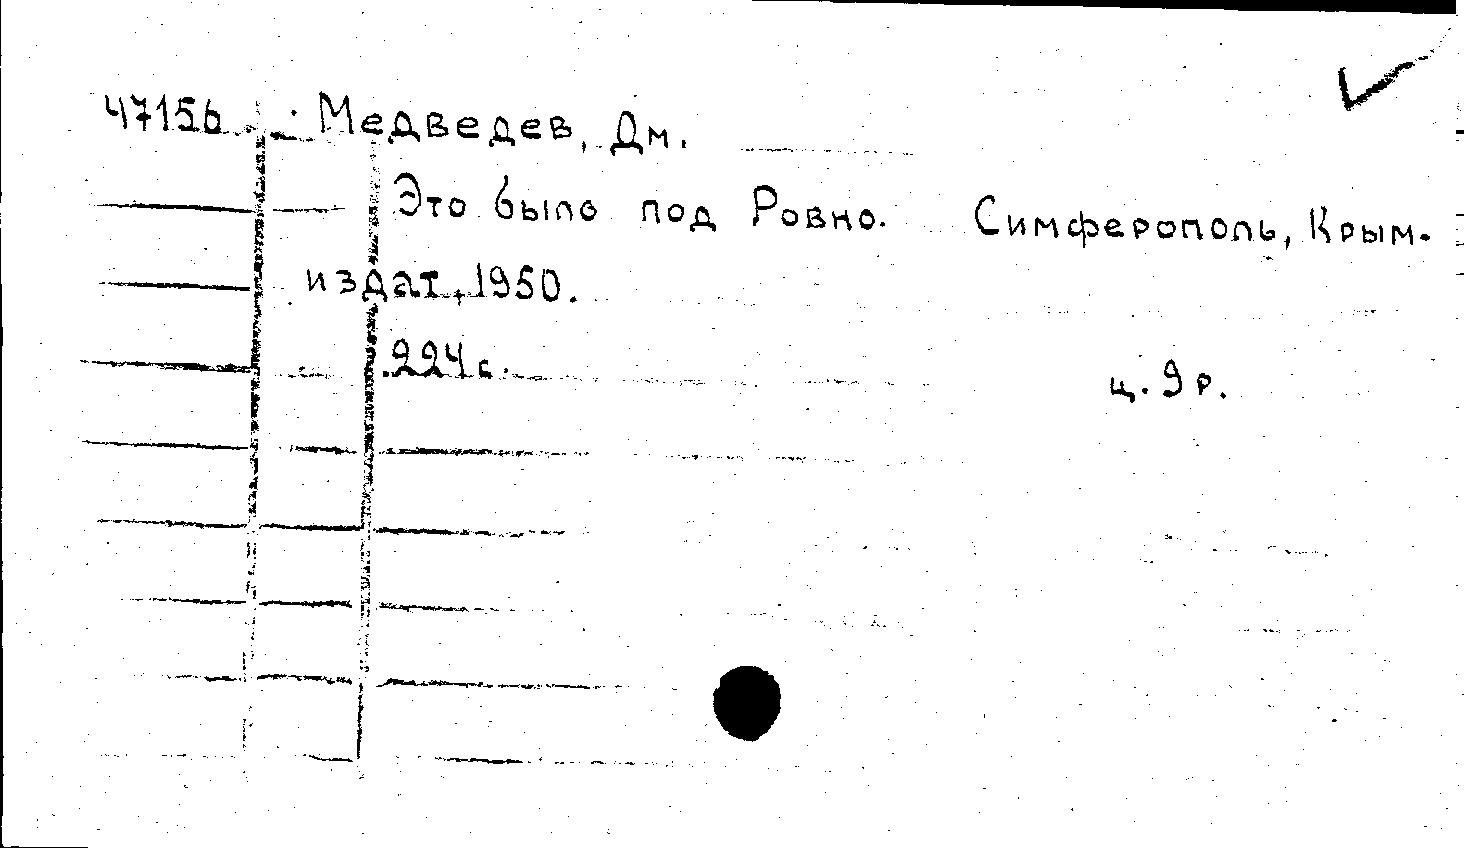 47156 Медведев, Дм.
Это было под Ровно. Симферополь, Крым.
издат, 1950.
224 с. ц. 9 р.